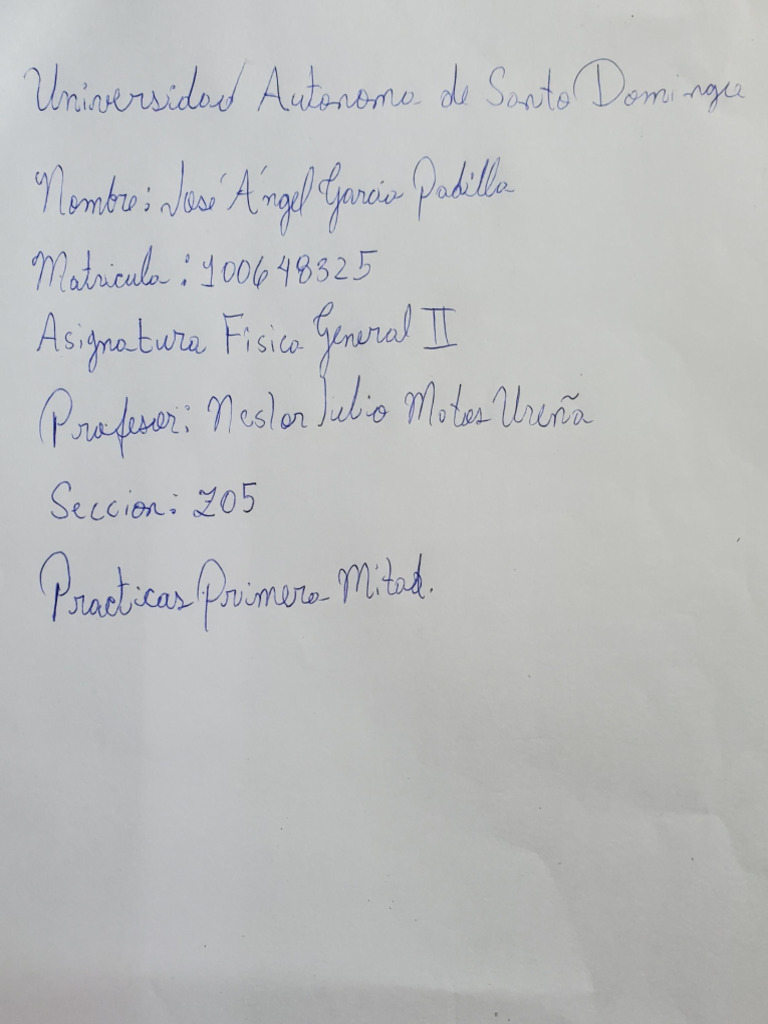 Universidad Autonoma de Santo Domingo
Nombre: José Ángel García Padilla
Matricula: 100648325
Asignatura Fisica General II
Profesor: Nestor Julio Matos Ureña
Seccion: Z05
Practicas Primera Mitad.